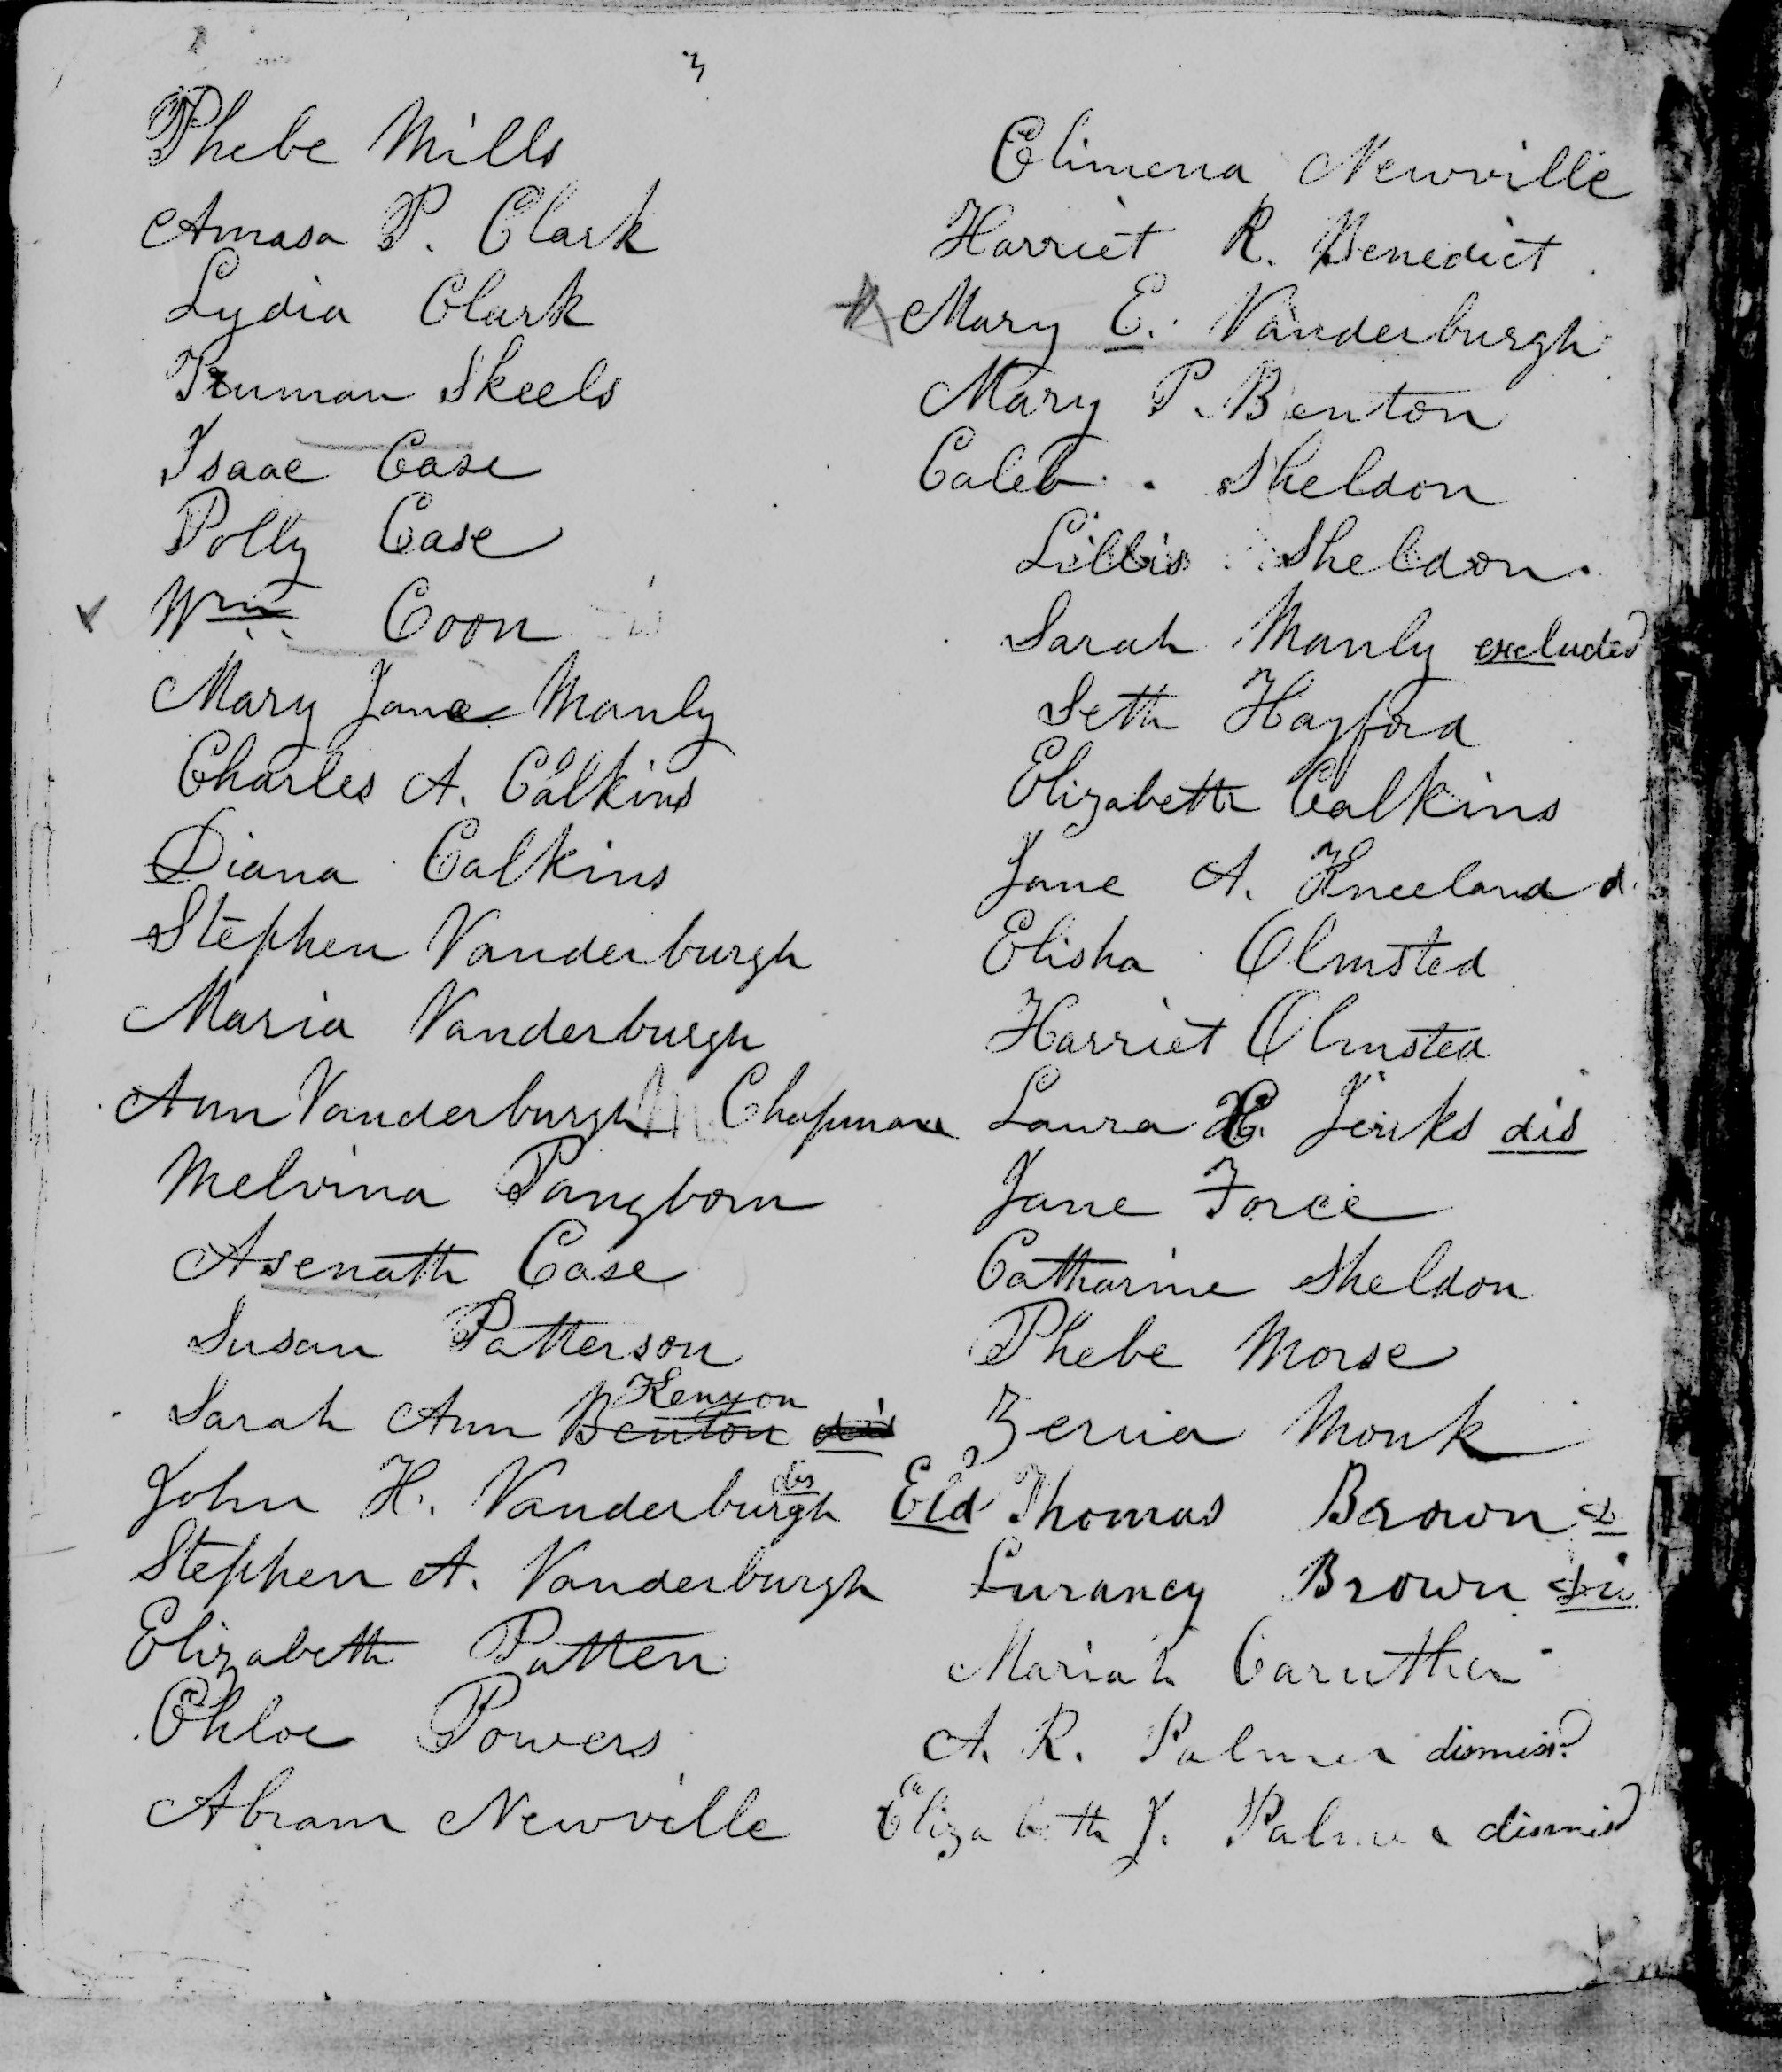 3
Phebe Mills
Amasa P. Clark
Lydia Clark
Truman Skeels
Isaac Case
Polly Case
Wm Coon
Mary Jane Manly
Charles A. Calkins
Diana Calkins
Stephen Vanderburgh
Maria Vanderburgh
Ann Vanderburgh Chapman
Melvina Pangborn
Asenath Case
Susan Patterson
Kenyon
Sarah Ann Benton dis
dis
John H. Vanderburgh
Stephen A. Vanderburgh
Elizabeth Patten
Chloe Powers
Abram Newville
Climena Newville
Harriet R. Benedict
Mary E. Vanderburgh
Mary P. Benton
Caleb Sheldon
Lillis Sheldon
Sarah Manly excluded
Seth Hayford
Elizabeth Calkins
Jane A. Kneeland d.
Elisha Olmsted
Harriet Olmsted
Laura H. Jenks dis
Jane Force
Catharine Sheldon
Phebe Morse
Zeruia Monk
Eld Thomas Brown
Lurancy Brown
Mariah
A. R. Palmer dismisd
Elizabeth J. Palmer dismisd